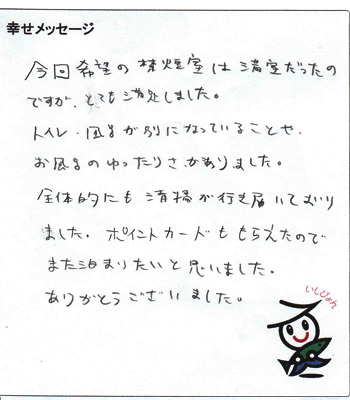 幸せメッセージ
今回希望の禁煙室は満室だったの
ですが、とても満足しました。
トイレ・風呂が別になっていることや、
お風呂のゆったりさがありました。
全体的にも清掃が行き届いており
ました。ポイントカードももらえたので
また泊まりたいと思いました。
ありがとうございました。
いしじょん